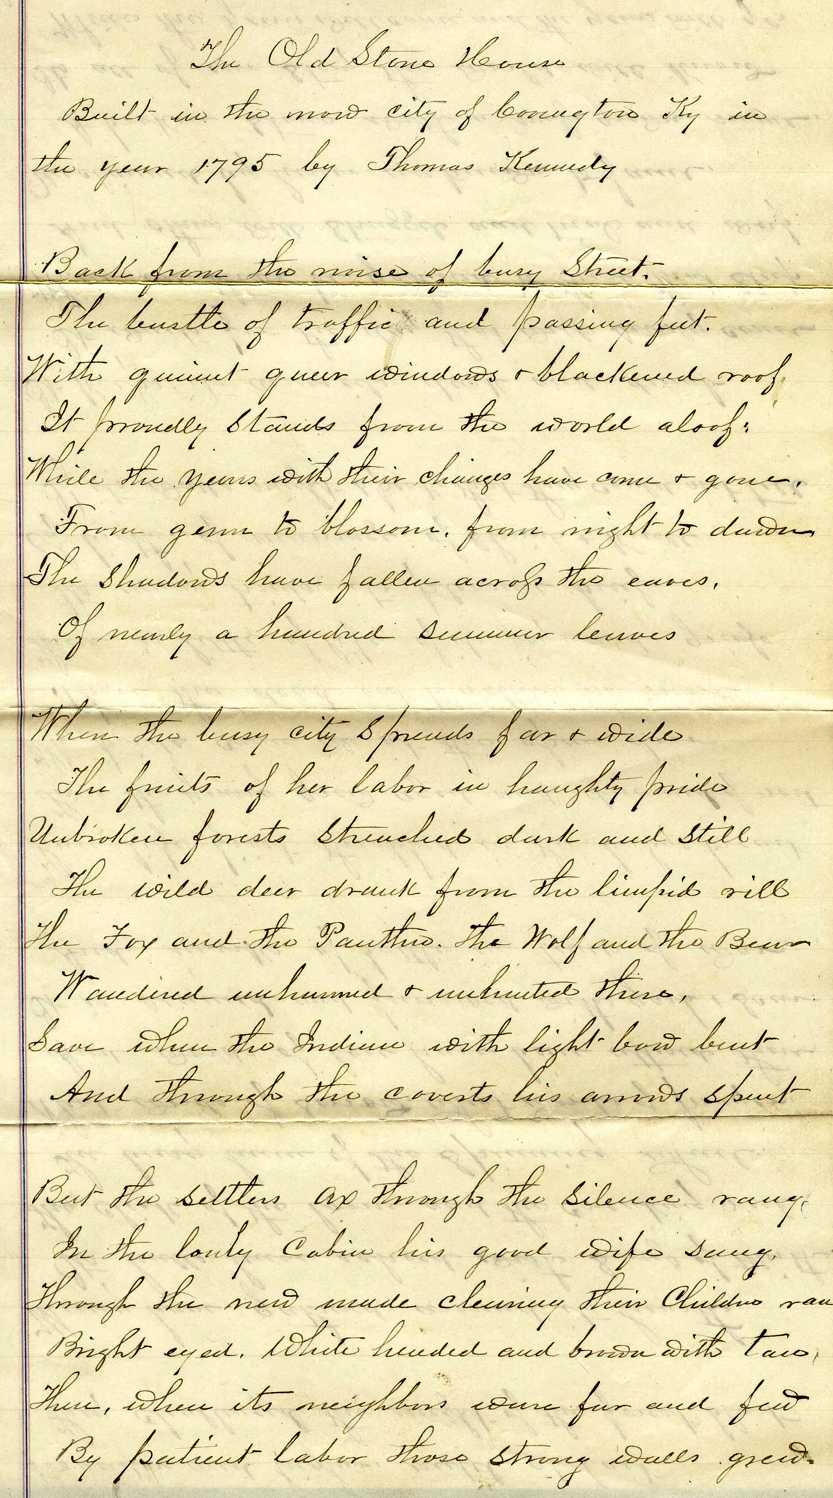 The Old Stone House
Built in the now city of Covington Ky in
the year 1795 by Thomas Kennedy
Back from the noise of busy Street.
The bustle of traffic and passing feet.
With quaint queer windows & blackened roof,
It proudly Stands from the world aloof;
While the years with their changes have come & gone,
From germ to blossom, from night to dawn
The Shadows have fallen across the eaves,
Of nearly a hundred Summer leaves
When the busy city Spreads far & wide
The fruits of her labor in haughty pride
Unbroken forests streached dark and Still
The wild deer drank from the limpid rill
The Fox and the Panther. The Wolf and the Bear
Wandered unharmed & unhunted there,
Save when the Indian with light bow bent
And through the coverts his arrows spent
But the settlers ax through the silence rang,
In the lonly Cabin his good wife sang,
Through the new made clearing their Children ran
Bright eyed, White headed and brown with tan,
Then, when its neighbors were far and few
By patient labor those strong walls grew.